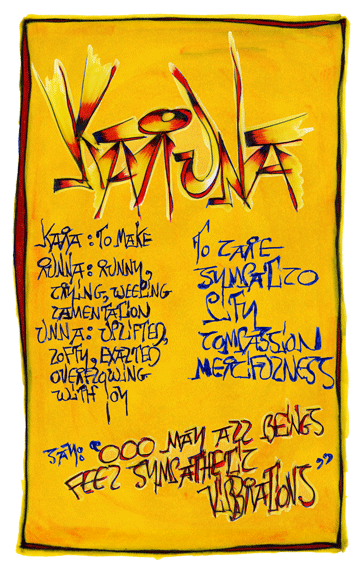 KARUNA
KARA : TO MAKE
RUNNA : RUNNY,
CRYING, WEEPING
LAMENTATION
UNNA : UPLIFTED,
LOFTY, EXALTED
OVERFLOWING
WITH JOY
TO CARE
SYMPATICO
PITY
COMPASSION
MERCIFULNESS
SAY: "OOO MAY ALL BEINGS
FEEL SYMPATHETIC
VIBRATIONS"